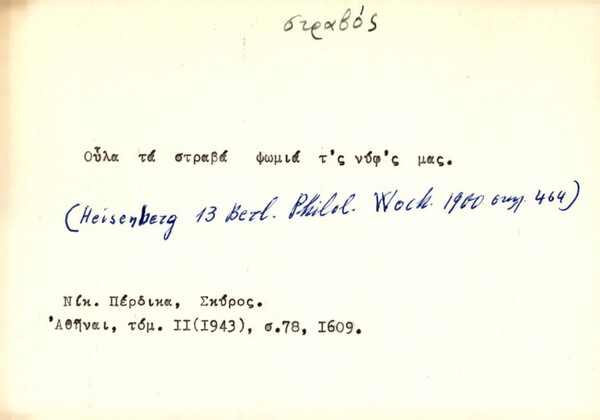 στραβός
Οὗλα τά στραβά ψωμιά τ'ς νύφ'ς μας.
(Heisenberg 13 Berl. Philol. Woch. 1900 στηλ. 464)
Νίκ. Πέρδικα, Σκῦρος.
Ἀθῆναι, τόμ. II(1943), σ.78, 1609.